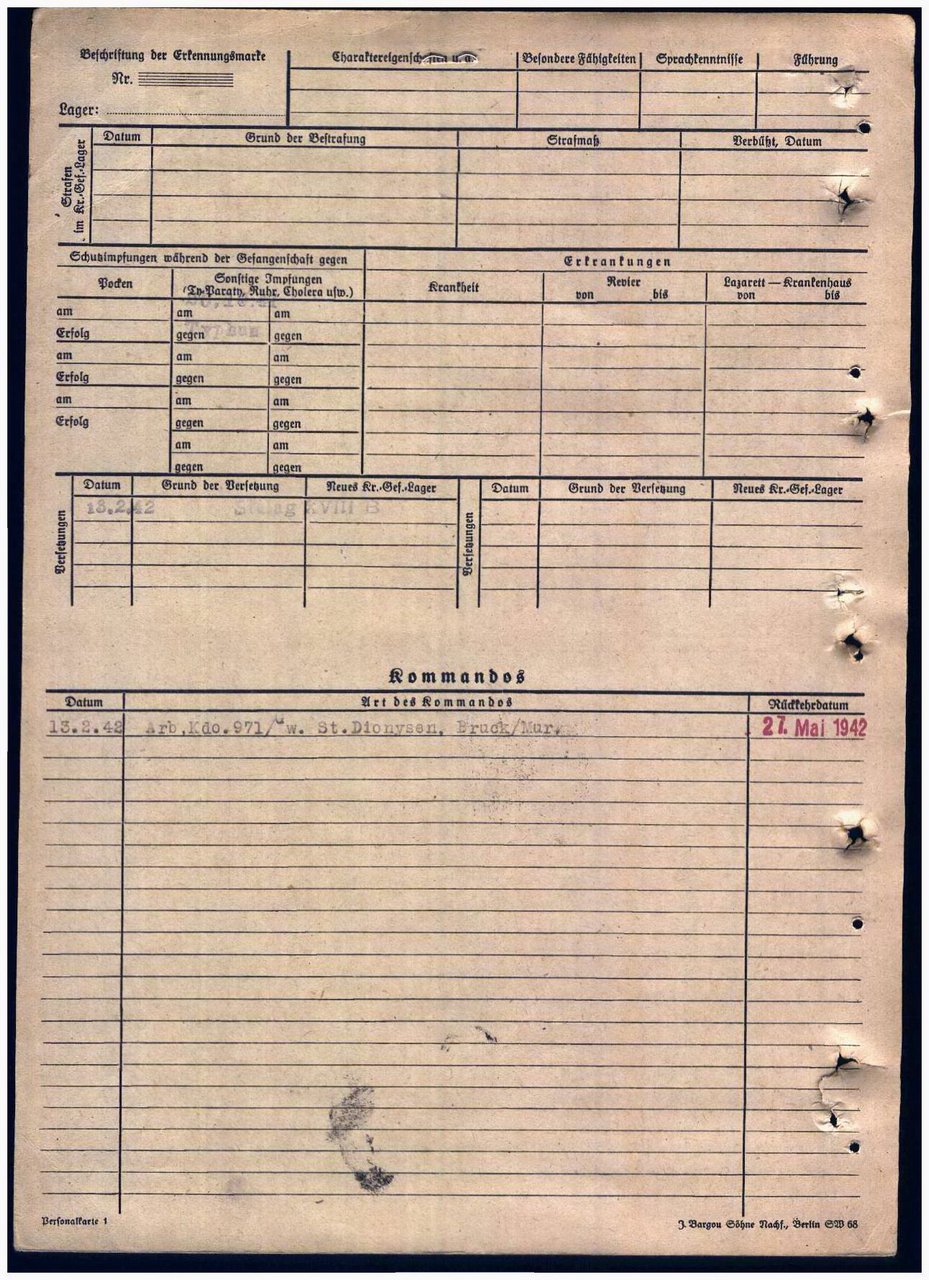 Beschriftung der Erkennungsmarke
Nr.
Lager:
Charaktereigenschaften u. a. Besondere Fähigkeiten Sprachkenntnisse Führung
Strafen im Kr.-Gef.-Lager
Datum Grund der Bestrafung Strafmaß Verbüßt, Datum
Schutzimpfungen während der Gefangenschaft gegen Erkrankungen
Pocken Sonstige Impfungen (Ty-Paraty, Ruhr, Cholera usw.) Krankheit Revier von bis Lazarett — Krankenhaus von bis
am am am
Erfolg gegen Typhus gegen
am am am
Erfolg gegen gegen
am am am
Erfolg gegen gegen
am am
gegen gegen
Versetzungen
Datum Grund der Versetzung Neues Kr.-Gef.-Lager
13.2.42 Stalag XVIII B
Versetzungen
Datum Grund der Versetzung Neues Kr.-Gef.-Lager
Kommandos
Datum Art des Kommandos Rückkehrdatum
13.2.42 Arb.Kdo.971/ w. St.Dionysen, Bruck/Mur. 27. Mai 1942
Personalkarte 1 J. Bargou Söhne Nachf., Berlin SW 68